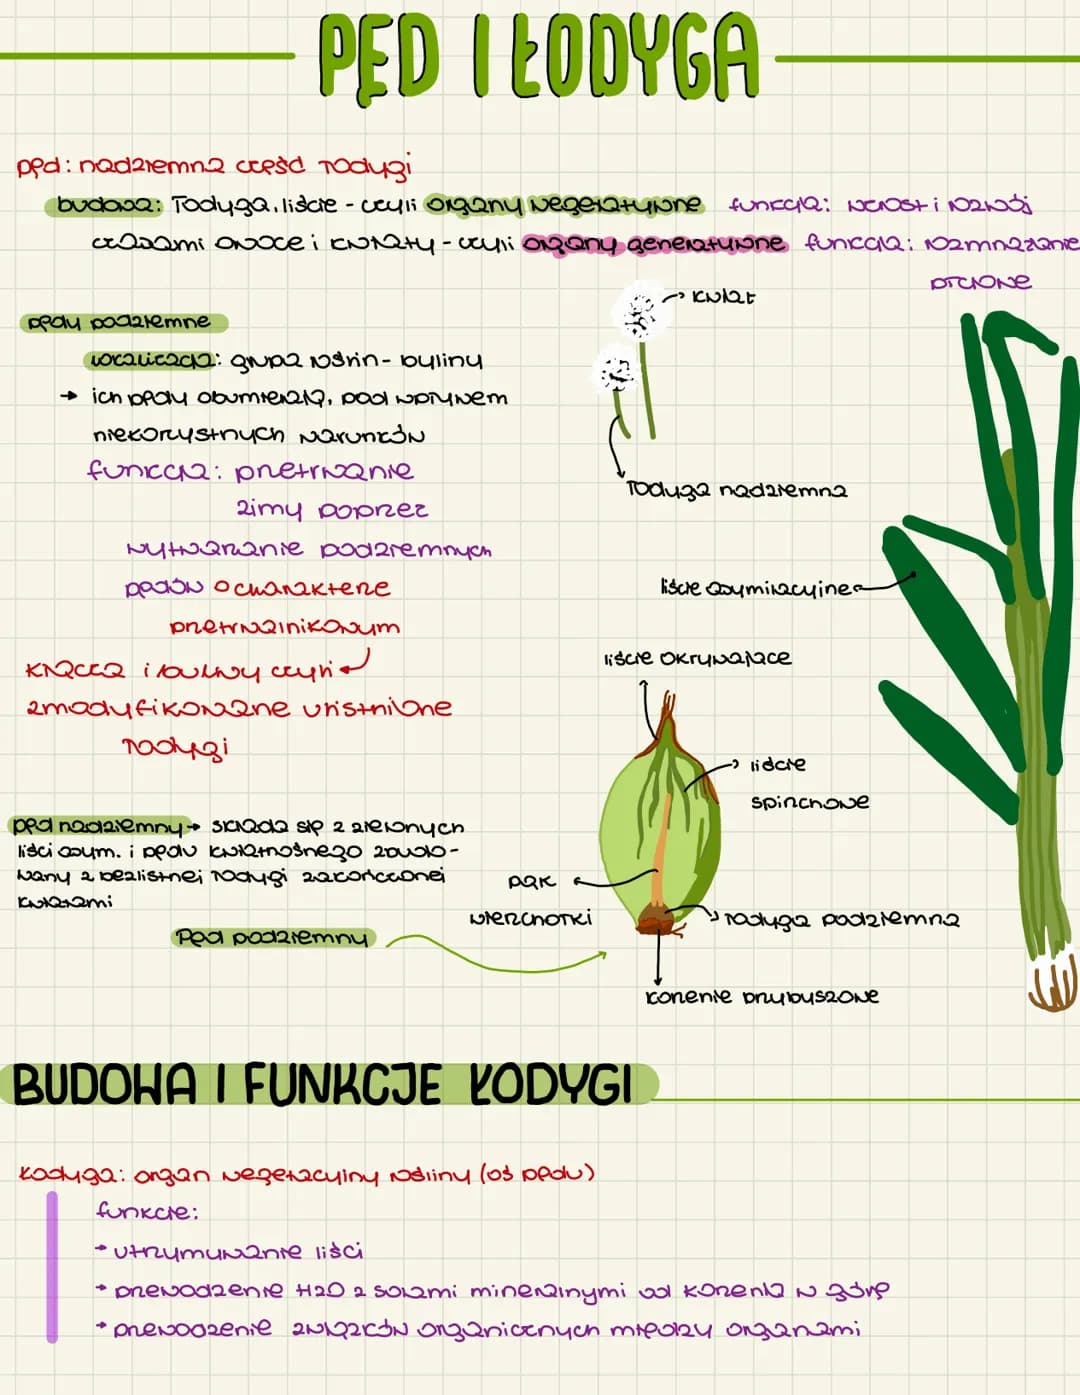 PĘD I ŁODYGA
pęd: nadziemna część łodygi
budowa: łodyga, liście - czyli organy wegetatywne funkcja: wzrost i rozwój
czasami owoce i kwiaty - czyli organy generatywne funkcja: rozmnażanie
płciowe
kwiat
pędy podziemne
lokalizacja: grupa roślin - byliny
→ ich pędy obumierają, pod wpływem
niekorzystnych warunków
funkcja: przetrwanie
zimy poprzez
wytwarzanie podziemnych
pędów o charakterze
przetrwalnikowym
kłącza i bulwy czyli
zmodyfikowane ulistnione
łodygi
łodyga nadziemna
liście asymilacyjne
liście okrywające
liście
spichrzowe
pęd nadziemny → składa się z zielonych
liści asym. i pędu kwiatnośnego zbudo-
wany z bezlistnej łodygi zakończonej
kwiatami
pąk
wierzchołki
łodyga podziemna
Pęd podziemny
korzenie przybyszowe
BUDOWA I FUNKCJE ŁODYGI
Łodyga: organ wegetacyjny rośliny (oś pędu)
funkcje:
→ utrzymywanie liści
→ przewodzenie H2O z solami mineralnymi od korzenia w górę
→ przewodzenie związków organicznych między organami